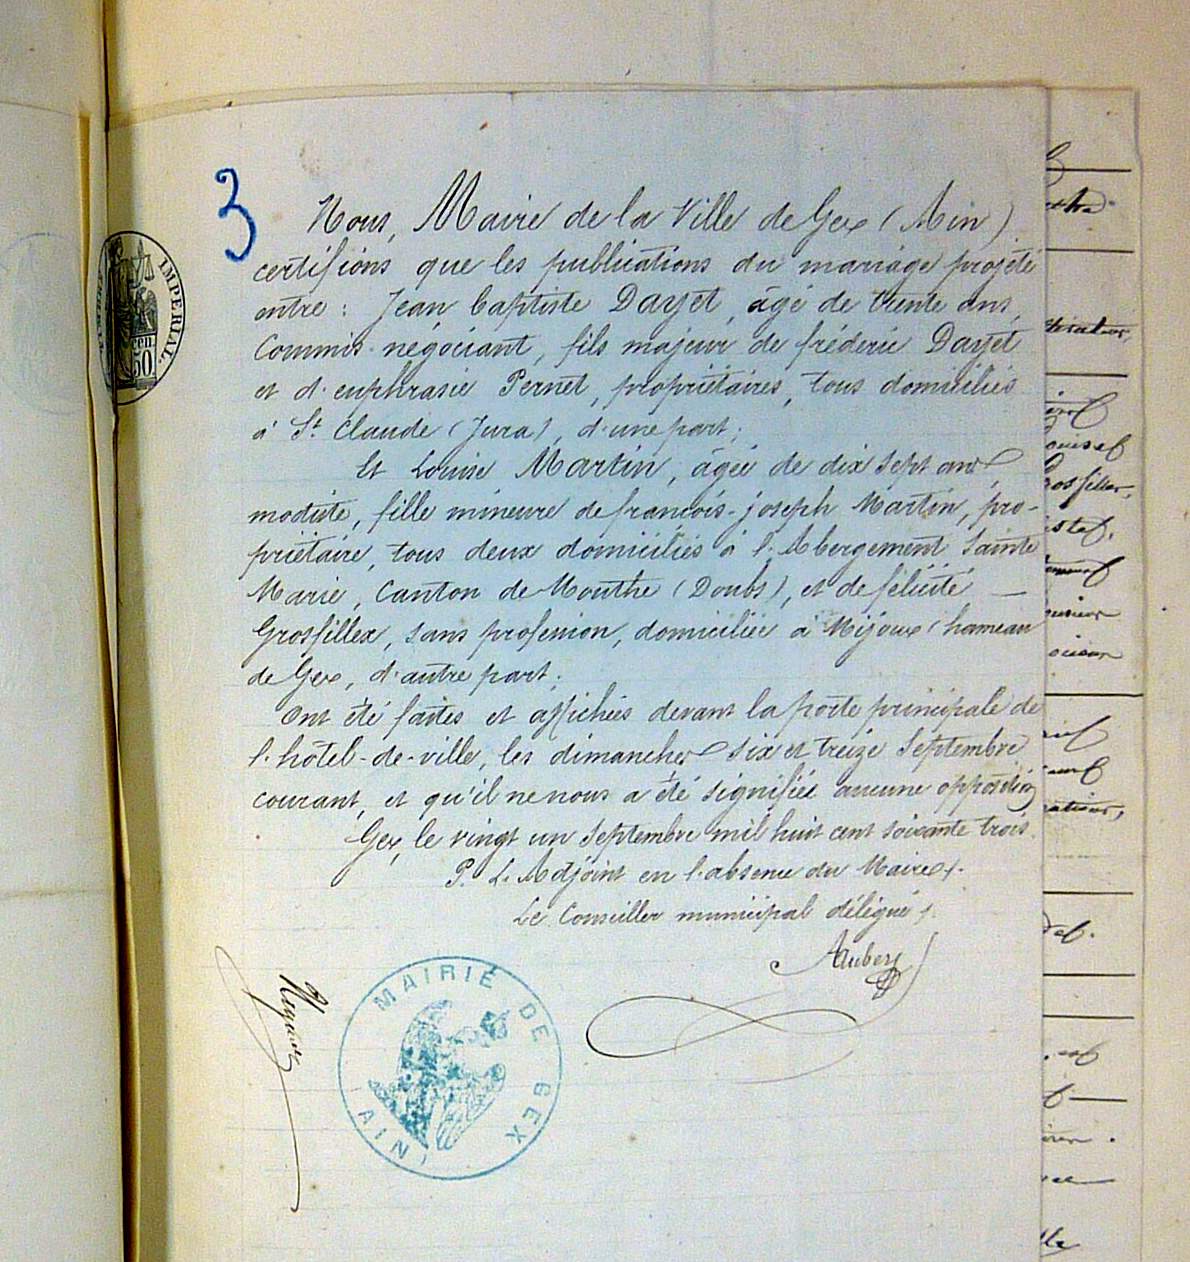 3
IMPERIAL
50
Nous, Maire de la Ville de Gex (Ain)
certifions que les publications du mariage projeté
entre : Jean baptiste Dayet, âgé de trente ans,
Commis-négociant, fils majeur de fréderic Dayet
et d'euphrasie Pernet, propriétaires, tous domiciliés
à St Claude (Jura), d'une part;
Et Louise Martin, âgée de dix sept ans
modiste, fille mineure de francois-joseph Martin, pro-
priétaire, tous deux domiciliés à l'Abergement Sainte
Marie, Canton de Mouthe (Doubs), et de félicité —
Grosfillex, sans profession, domiciliée à Mijoux (hameau
de Gex, d'autre part.
Ont été faites et affichées devant la porte principale de
l'hôtel-de-ville, les dimanches six et treize Septembre
courant, et qu'il ne nous a été signifiée aucune opposition
Gex, le vingt un Septembre mil huit cent soixante trois.
P. L'Adjoint en l'absence du Maire
Le Conseiller municipal délégué
MAIRIE DE GEX
(AIN)